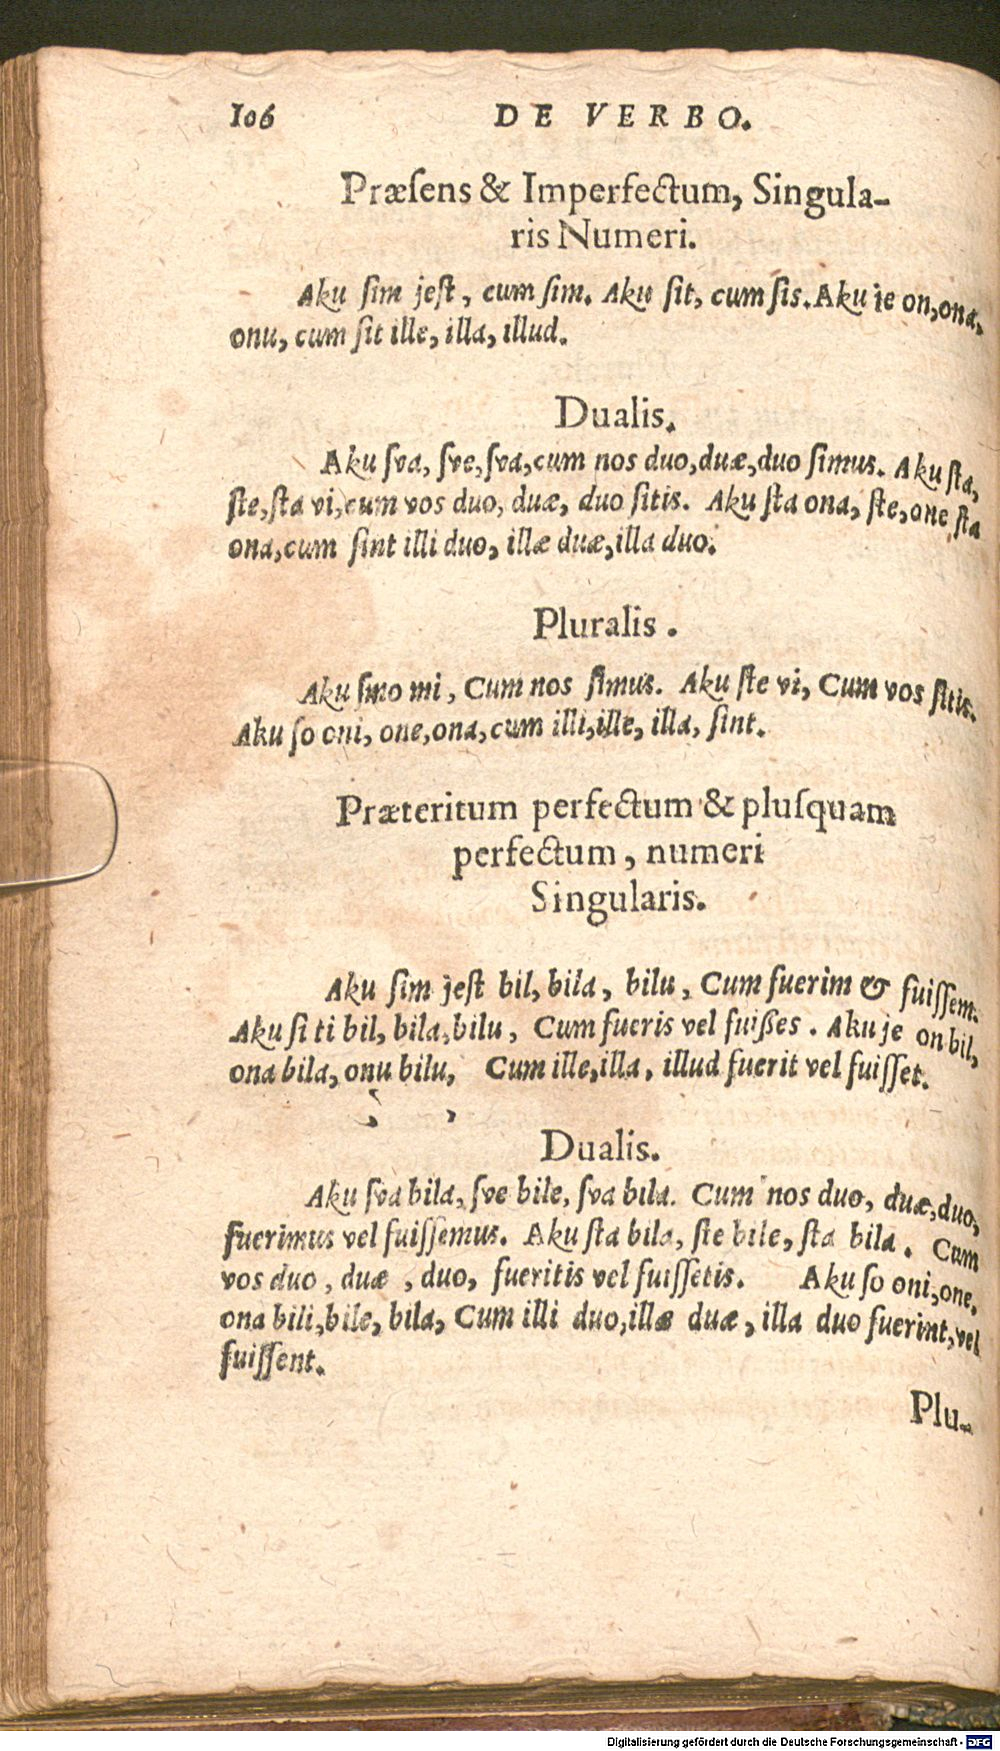 106 DE VERBO.
Præſens & Imperfectum, Singula-
ris Numeri.
Aku ſim jeſt, cum ſim. Aku ſit, cum ſis. Aku je on, ona,
onu, cum ſit ille, illa, illud.
Dualis.
Aku ſva, ſve, ſva, cum nos duo, duæ, duo ſimus. Aku ſta,
ſte, ſta vi, cum vos duo, duæ, duo ſitis. Aku ſta ona, ſte, one ſta
ona, cum ſint illi duo, illæ duæ, illa duo.
Pluralis.
Aku ſmo mi, Cum nos ſimus. Aku ſte vi, Cum vos ſitis.
Aku ſo oni, one, ona, cum illi, ille, illa, ſint.
Præteritum perfectum & pluſquam
perfectum, numeri
Singularis.
Aku ſim jeſt bil, bila, bilu, Cum fuerim & fuiſſem.
Aku ſi ti bil, bila, bilu, Cum fueris vel fuißes. Aku je on bil,
ona bila, onu bilu, Cum ille, illa, illud fuerit vel fuiſſet.
Dualis.
Aku ſva bila, ſve bile, ſva bila. Cum nos duo, duæ, duo,
fuerimus vel fuiſſemus. Aku ſta bila, ſte bile, ſta bila. Cum
vos duo, duæ, duo, fueritis vel fuiſſetis. Aku ſo oni, one,
ona bili, bile, bila, Cum illi duo, illæ duæ, illa duo fuerint, vel
fuiſſent.
Plu-
Digitalisierung gefördert durch die Deutsche Forschungsgemeinschaft - DFG